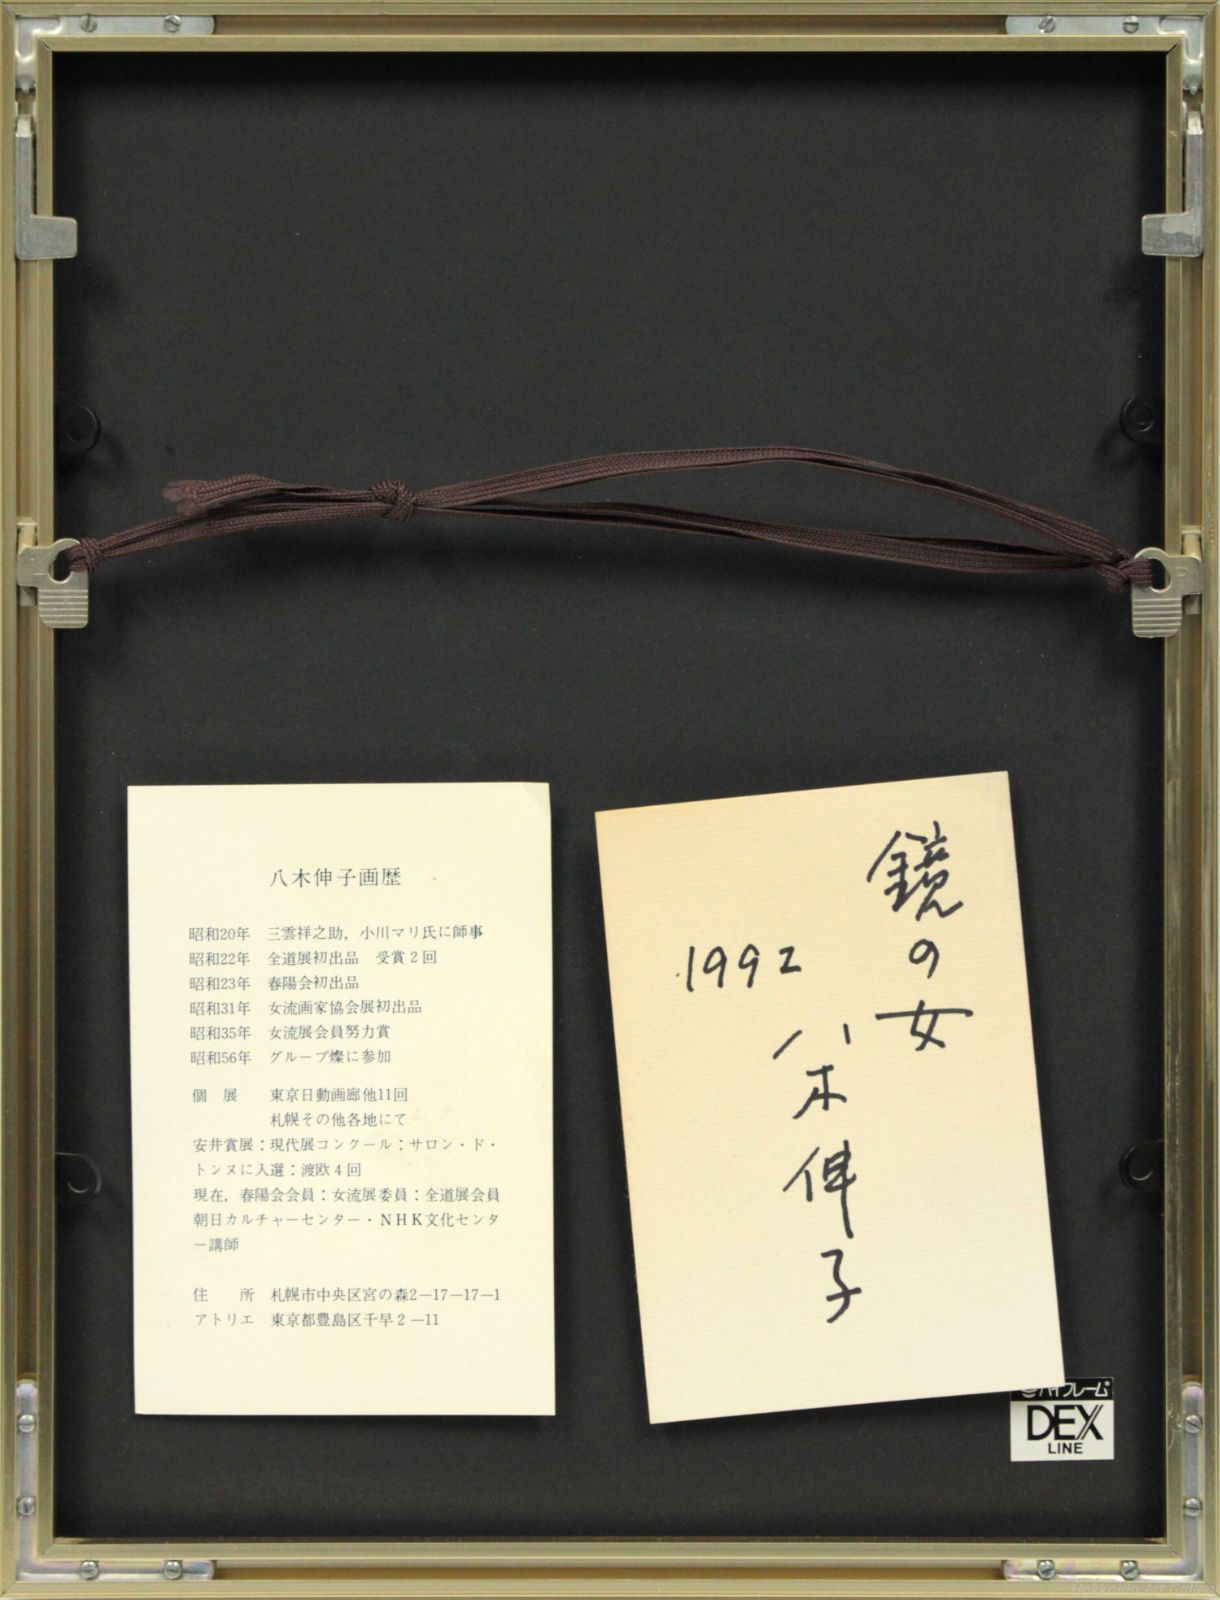 八木伸子画歴
昭和20年 三雲祥之助，小川マリ氏に師事
昭和22年 全道展初出品 受賞2回
昭和23年 春陽会初出品
昭和31年 女流画家協会展初出品
昭和35年 女流展会員努力賞
昭和56年 グループ燦に参加
個 展 東京日動画廊他11回
札幌その他各地にて
安井賞展：現代展コンクール：サロン・ド・
トンヌに入選：渡欧4回
現在，春陽会会員：女流展委員：全道展会員
朝日カルチャーセンター・NHK文化センタ
ー講師
住 所 札幌市中央区宮の森2―17―17―1
アトリエ 東京都豊島区千早2―11
鏡の女
1992
八木伸子
ハイフレーム
DEX
LINE
Hokkaido Art Gallery